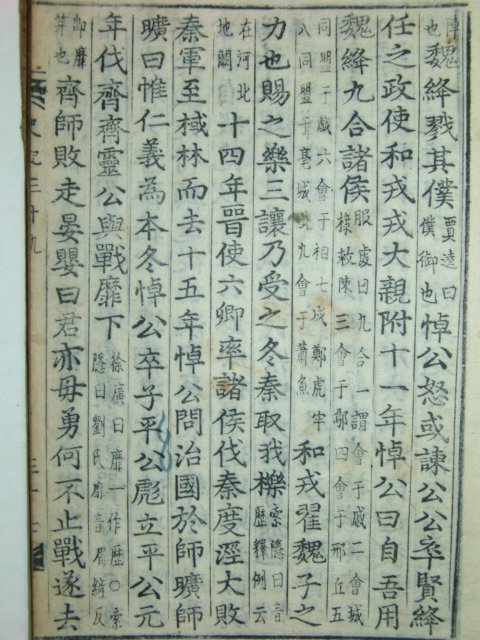 陳也魏絳戮其僕賈逵曰僕御也悼公怒或諫公公卒賢絳
任之政使和戎戎大親附十一年悼公曰自吾用
魏絳九合諸侯服虔曰九合一謂會于戚二會城棣救陳三會于鄬四會于邢丘五
同盟于戲六會于柤七戍鄭虎牢八同盟于亳城北九會于蕭魚和戎翟魏子之
力也賜之樂三讓乃受之冬秦取我櫟索隱曰音歷釋例云
在河北地闕十四年晉使六卿率諸侯伐秦度涇大敗
秦軍至棫林而去十五年悼公問治國於師曠師
曠曰惟仁義為本冬悼公卒子平公彪立平公元
年伐齊齊靈公與戰靡下徐廣曰靡一作歷○索隱曰劉氏靡音眉綺反
即靡笄也齊師敗走晏嬰曰君亦毋勇何不止戰遂去
史記三十九